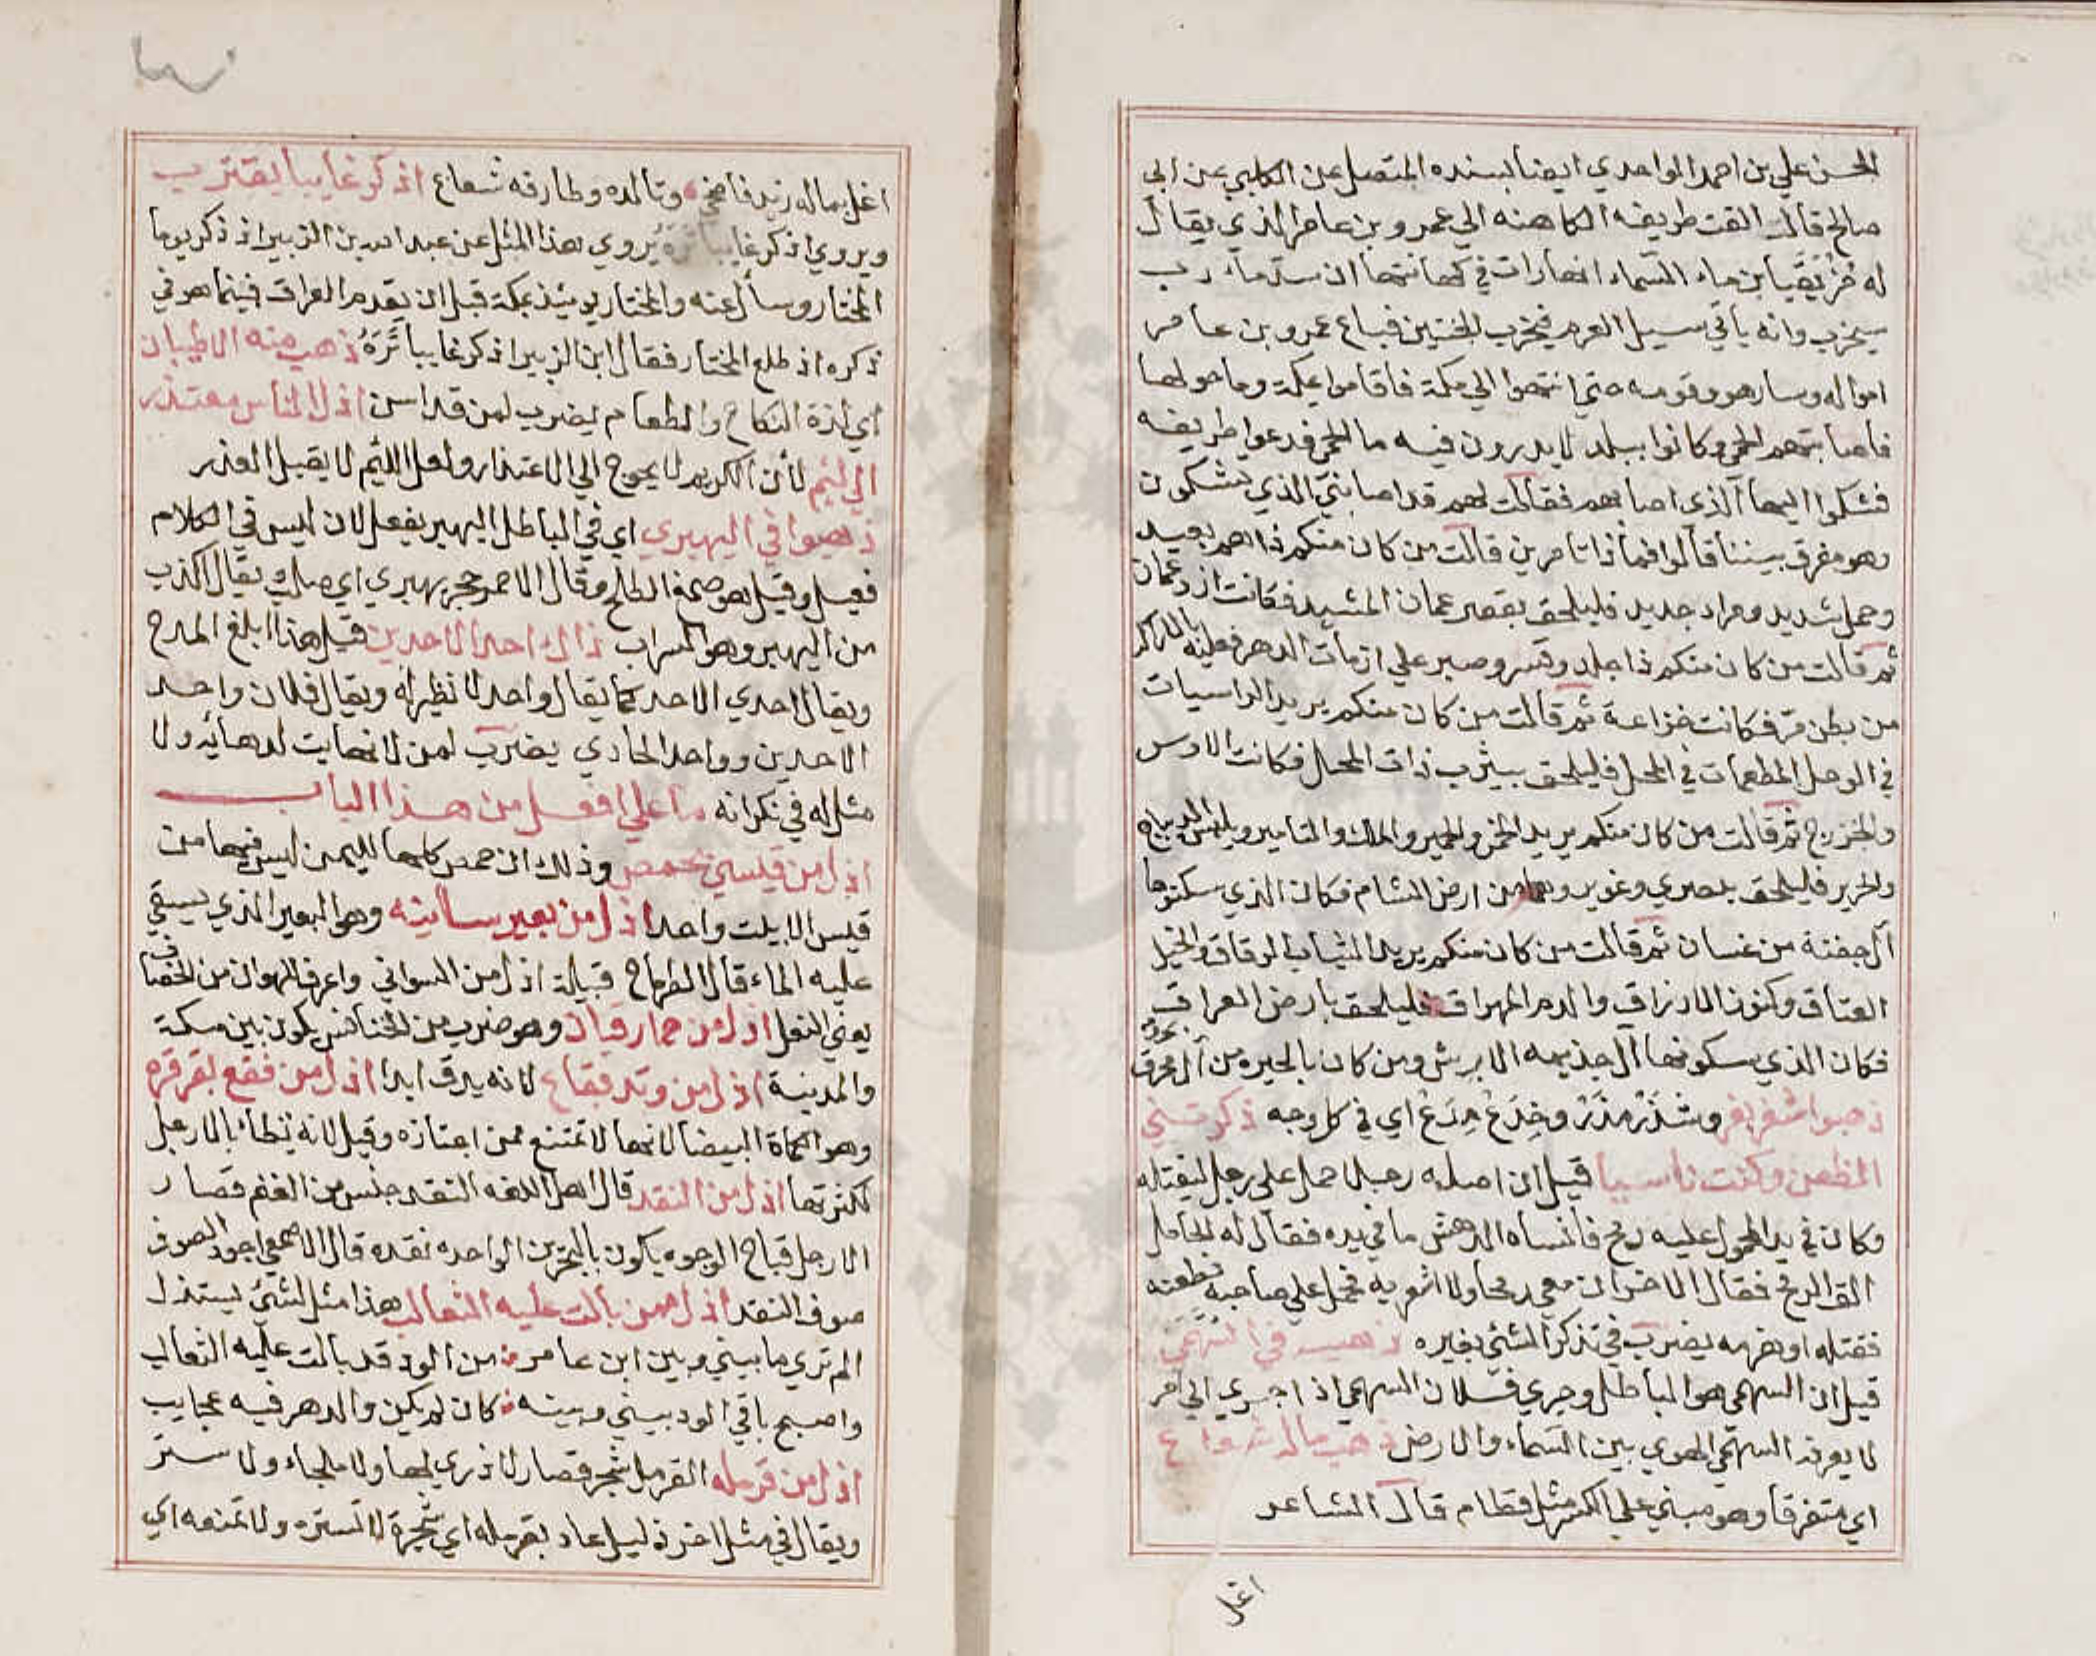 الحسن علي بن احمد الواحدي ايضا بسنده المتصل عن الكلبي عن ابي
صالح قال القت طريفه الكاهنه الي عمرو بن عامر الذي يقال
له مُزَيقَيا بن ماء السماء انها رات في كهانتها ان سد مأرب
سيخرب وانه يأتي سيل العرم فيخرب الجنتين فباع عمرو بن عامر
امواله وسار هو وقومه حتي انتهوا الي مكة فاقاموا بمكة وما حولها
فأصابتهم الحمي وكانوا ببلد لا يدرون فيه ما الحمي فدعوا طريفه
فشكوا اليها الذي اصابهم فقالت لهم قد اصابني الذي تشكون
وهو مفرق بيننا قالوا فماذا تامرين قالت من كان منكم ذا هم بعيد
وحمل شديد ومراد جديد فليلحق بقصر عمان المشيد فكانت ازد عمان
ثم قالت من كان منكم ذا جلد وقسر وصبر علي ازمات الدهر فعليه بالاراك
من بطن مر فكانت خزاعة ثم قالت من كان منكم يريد الراسيات
في الوحل المطعمات في المحل فليلحق بيثرب ذات المحل فكانت الاوس
والخزرج ثم قالت من كان منكم يريد الخمر والخمير والملك والتامير ويلبس الديباج
والحرير فليلحق ببصري وغوير وهما من ارض الشام فكان الذي سكنوها
آل جفنة من غسان ثم قالت من كان منكم يريد الثياب الرقاق والخيل
العتاق وكنوز الارزاق والدم المهراق فليلحق بارض العراق
فكان الذي يسكونها آل جذيمه الابرش ومن كان بالحيره من آل محرق
ذهبوا شغر بغر وشَذَرْ مَذَرْ وخِذَعْ مِذَعْ اي في كل وجه ذكرتني
الطعن وكنت ناسيا قيل ان اصله رجلا حمل علي رجل ليقتله
وكان في يد المحمول عليه رمح فأنساه الدهش ما في يده فقال له الحامل
الق الرمح فقال الاخر ان معي رمحا ولا اشعر به فحمل علي صاحبه فطعنه
فقتله او هزمه يضرب في تذكر الشئ بغيره ذهب في السُّمَّهَي
قيل ان السمهي هو الباطل وجري فلان السمهي اذا جري الي امر
لا يعرفه السمهي الهوي بين السماء والارض ذهب ماله شعاع
اي متفرقا وهو مبني علي الكسر مثل قطام قال الشاعر
اغل
اغل بماله زيد فاضحي وتالده وطارفه شعاع اذكر غايبا يقترب
ويروي اذكر غايبا تَرَهُ يُروي هذا المثل عن عبد الله بن الزبير اذ ذكر يوما
المختار وسأل عنه والمختار يومئذ بمكة قبل ان يقدم العراق فبينما هو في
ذكره اذ طلع المختار فقال ابن الزبير اذكر غايبا تَرَهُ ذهب منه الاطيبان
اي لذة النكاح والطعام يضرب لمن قد اسن اذل الناس معتذر
الي لئيم لأن الكريم لا يحوج الي الاعتذار ولعل اللئيم لا يقبل العذر
ذهبوا في اليهيري اي في الباطل اليهير يفعل لان ليس في الكلام
فعيل وقيل هو صمغ الطلح وقال الاحمر حجر يهيري اي صلب يقال اكذب
من اليهير وهو السراب ذاك احد الاحدين قيل هذا ابلغ المدح
ويقال احدي الاحد كما يقال واحد لا نظير له ويقال فلان واحد
الاحدين وواحد الحادي يضرب لمن لا نهايت لدهائه ولا
مثل له في نكرانه ما علي افعل من هذا الباب
اذل من قيسي بحمص وذلك ان حمص كلها لليمن ليس فيها من
قيس الا بيت واحد اذل من بعير سانيه وهو البعير الذي يسقي
عليه الماء قال الطرماح قبيلة اذل من السواني واعرف للهوان من الخصاف
يعني النعل اذل من حمار قبان وهو ضرب من الخنافس يكون بين مكة
والمدينة اذل من وتد بقاع لانه يدق ابدا اذل من فقع بقرقره
وهو الكماة البيضا لانها لا تمتنع ممن اجتازه وقيل لانه يُطأ بالارجل
لكثرتها اذل من النقد قال اهل اللغه النقد جنس من الغنم قصار
الارجل قباح الوجوه يكون بالبحرين الواحده نقده قال الاصمعي اجود الصوف
صوف النقد اذل ممن بالت عليه الثعالب هذا مثل لشئ يستذل
الم تري ما بيني وبين ابن عامر من الود قد بالت عليه الثعالب
واصبح باقي الود بيني وبينه كان لم يكن والدهر فيه عجايب
اذل من قرمله القرمل شجر قصار لا ذري لها ولا ملجاء ولا ستر
ويقال في مثل اخر ذليل عاد بقرمله اي شجرة لا تستره ولا تمنعه اي